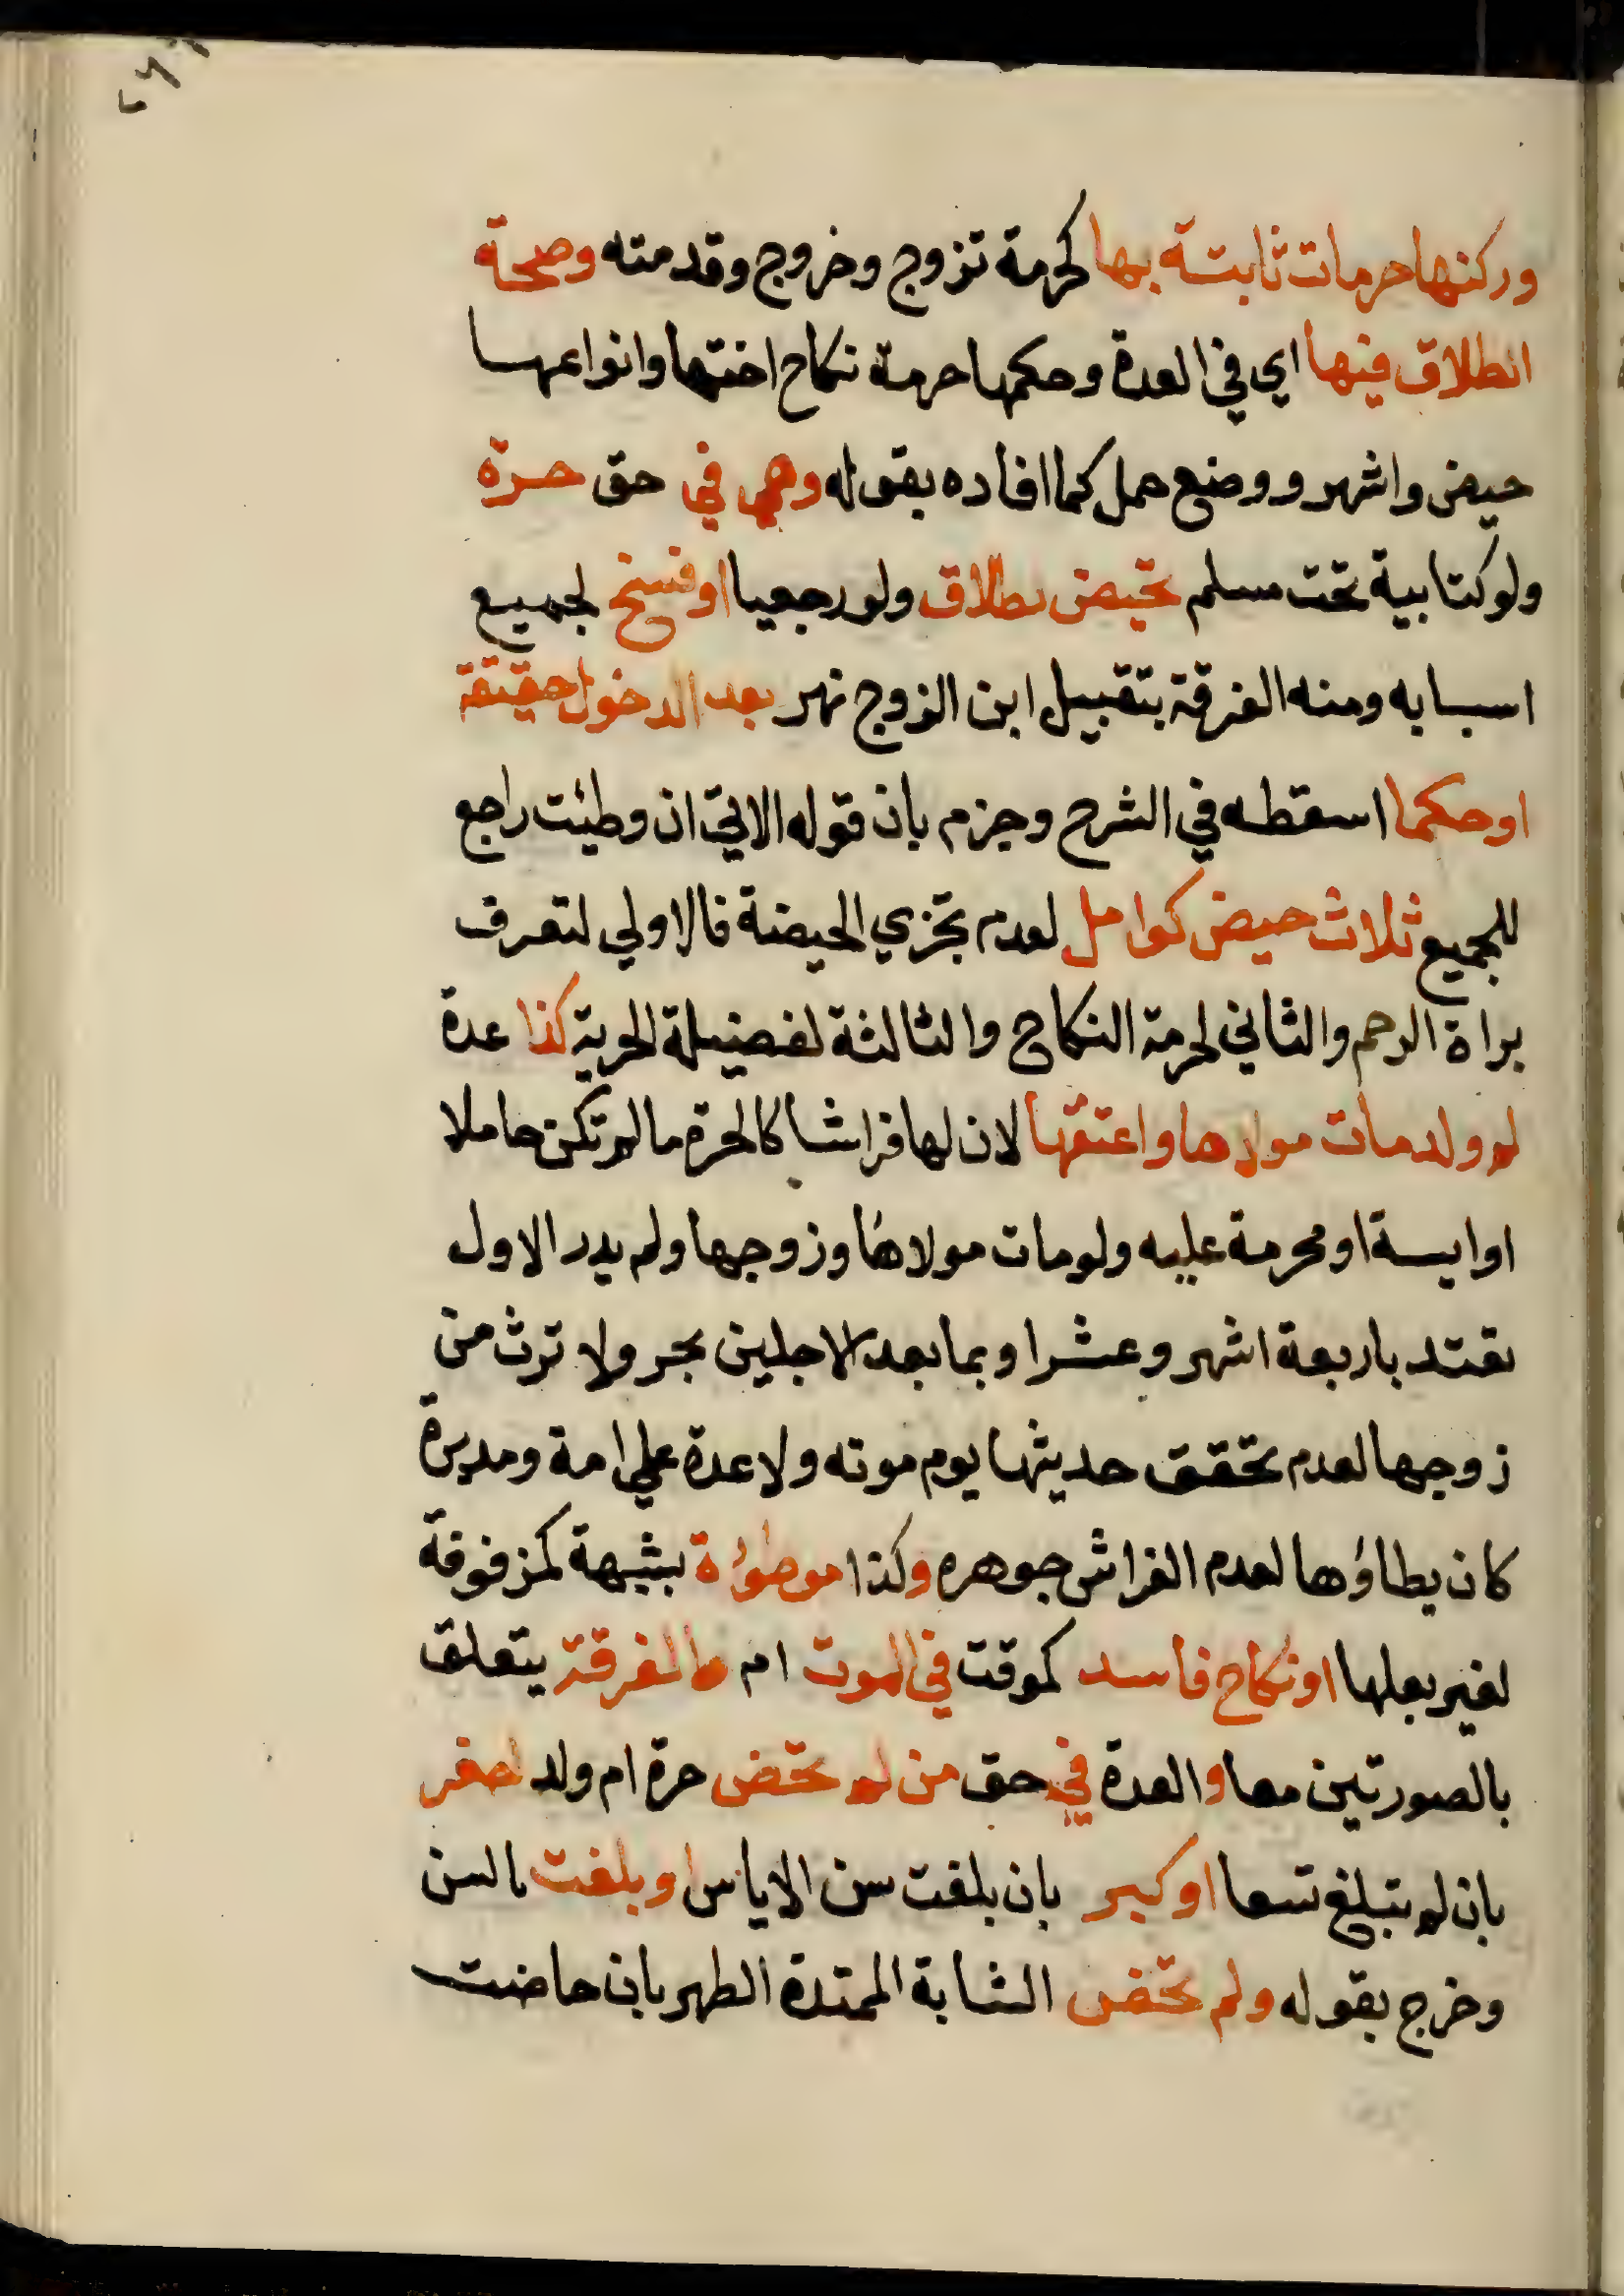 وركنها حرمات ثابتة بها لحرمة تزوج وخروج وقد مته وصحة
الطلاق فيها اي في العدة وحكمها حرمة نكاح اختها وانواعها
حيض واشهر ووضع حمل كما افاده بقوله وهي في حق حرة
ولو كتابية تحت مسلم تحيض لطلاق ولو رجعيا او فسخ لجميع
اسبابه ومنه الفرقة بتقبيل ابن الزوج نهر بعد الدخول حقيقة
او حكما اسقطه في الشرح وجزم بان قوله الاتي ان وطيئت راجع
للجميع ثلاث حيض كوامل لعدم تجزي الحيضة فالاولي لتعرف
براة الرحم والثاني لحرمة النكاح والثالثة لفضيلة الحرية كذا عدة
ام ولد مات مولاها واعتقها لان لها فراشا كالحرة مالم تكن حاملا
او ايسة او محرمة عليه ولو مات مولاها وزوجها ولم يدر الاول
تعتد باربعة اشهر وعشرا وبما بعد الاجلين بحر ولا ترث من
زوجها لعدم تحقق حديثها يوم موته ولا عدة علي امة ومدبرة
كان يطاؤها لعدم الفراش جوهره وكذا موطؤة بشبهة كمزفوفة
لغير بعلها او نكاح فاسد كموقت في الموت ام والفرقة يتعلق
بالصورتين معا والعدة في حق من لم تحض حرة ام ولد لصغر
بان لم تبلغ تسعا او كبر بان بلغت سن الاياس او بلغت بالسن
وخرج بقوله ولم تحض الشابة الممتدة الطهر بان حاضت